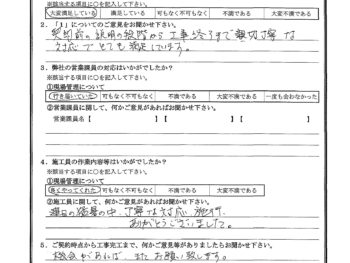 ※該当する項目に○を記入して下さい。
大変満足している 満足している 可もなく不可もなく 不満である 大変不満である
2.「1」についてのご意見をお聞かせ下さい。
契約前の説明の段階から工事終了まで親切丁寧な
対応でとても満足しています。
3.弊社の営業課員の対応はいかがでしたか?
※該当する項目に○を記入して下さい。
①現場管理について
行き届いていた 可もなく不可もなく 不満である 大変不満である 一度も会わなかった
②営業課員に関して、何かご意見があればお聞かせ下さい。
営業課員名【 】【 】【 】
4.施工員の作業内容等はいかがでしたか?
※該当する項目に○を記入して下さい。
①現場管理について
良くやってくれた 可もなく不可もなく 不満である 大変不満である
②施工員に関して、何かご意見があればお聞かせ下さい。
連日の猛暑の中、丁寧な対応、施工
ありがとうございました。
5.ご契約時点から工事完工まで、何かご意見等がありましたらお聞かせ下さい。
機会があれば、またお願い致します。